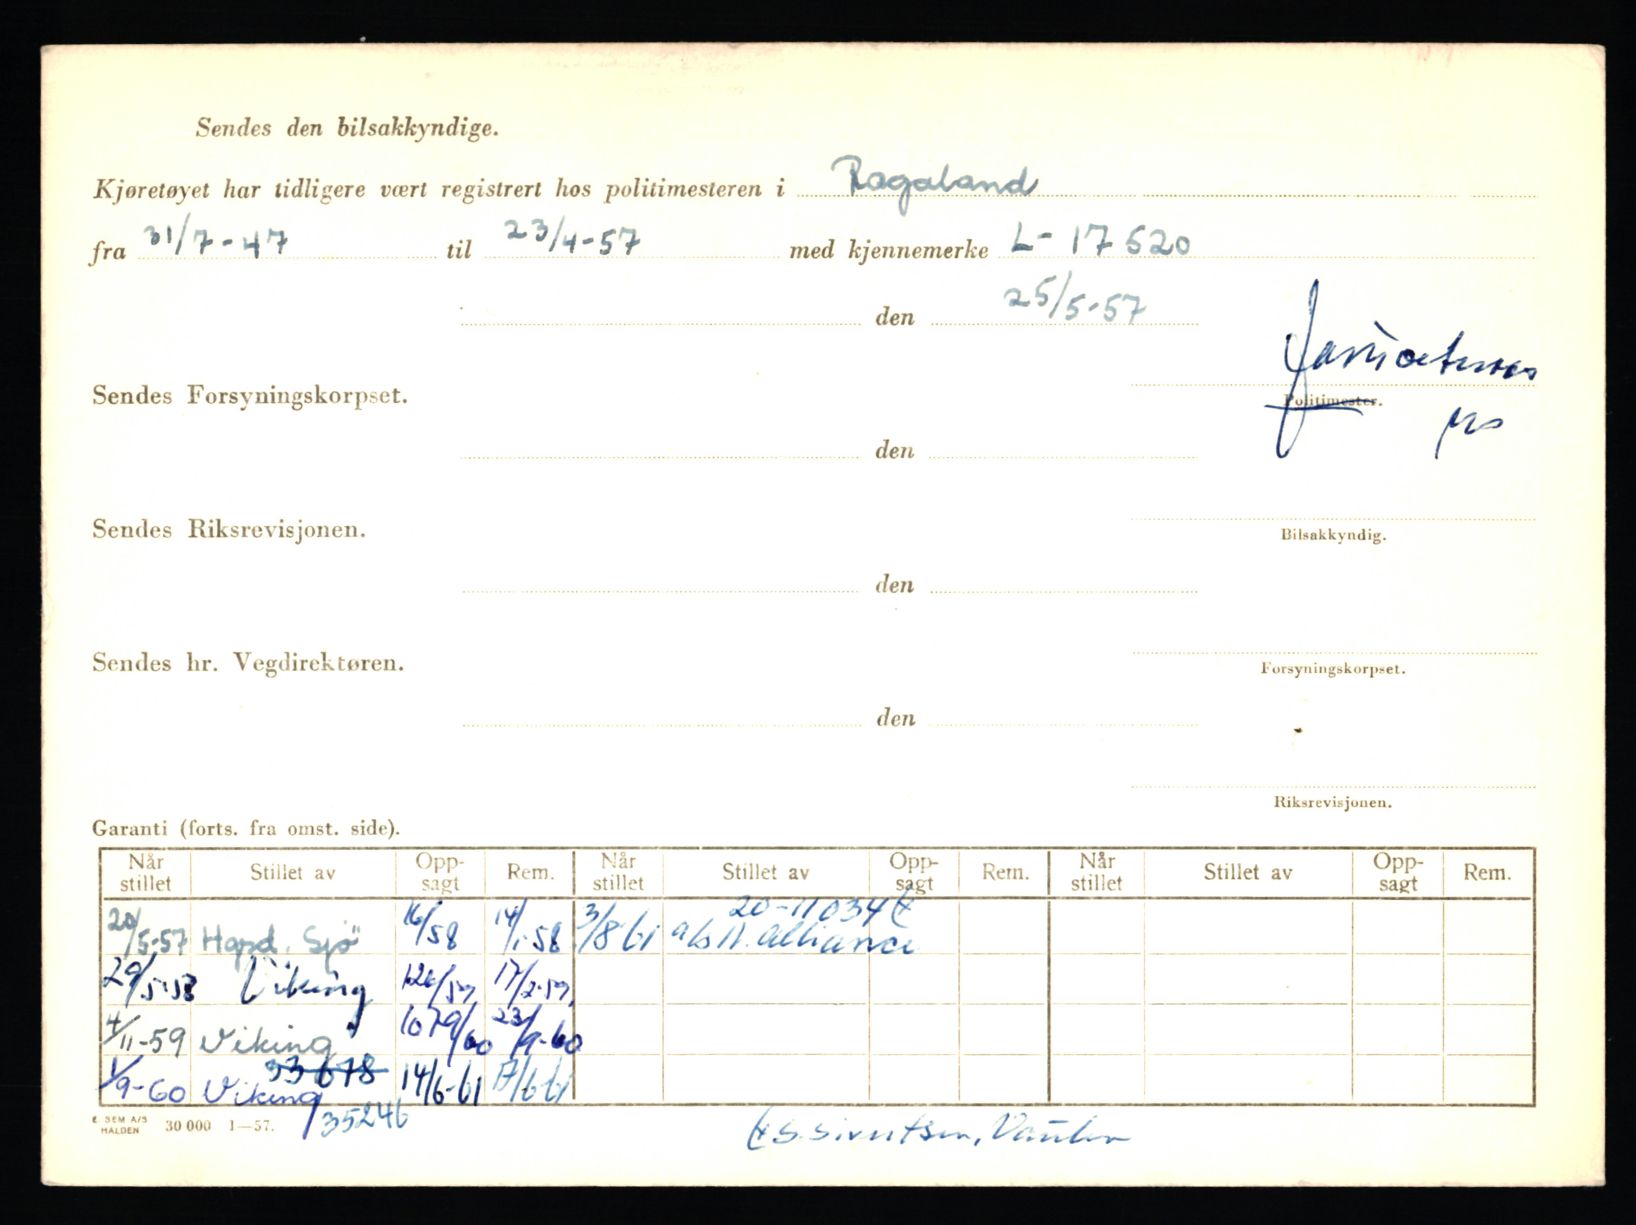 Sendes den bilsakkyndige.
Kjøretøyet har tidligere vært registrert hos politimesteren i Rogaland
fra 31/7-47 til 23/4-57 med kjennemerke L- 17520
den 25/5-57
Sendes Forsyningskorpset.
Politimester.
den
Sendes Riksrevisjonen.
Bilsakkyndig.
den
Sendes hr. Vegdirektøren.
Forsyningskorpset.
den
Riksrevisjonen.
Garanti (forts. fra omst. side).
Når stillet Stillet av Opp-sagt Rem. Når stillet Stillet av Opp-sagt Rem. Når stillet Stillet av Opp-sagt Rem.
20-11034
20/5-57 Hard. Sjö 16/58 14/1-58 3/8-61 Alliance
29/5-58 Viking 17/2-59
4/11-59 Viking 1079/60 23/9-60
33678
1/9-60 Viking 14/6-61 17/6-61
35246
E. SEM A/S HALDEN 30 000 1—57.
S. Sivertsen,